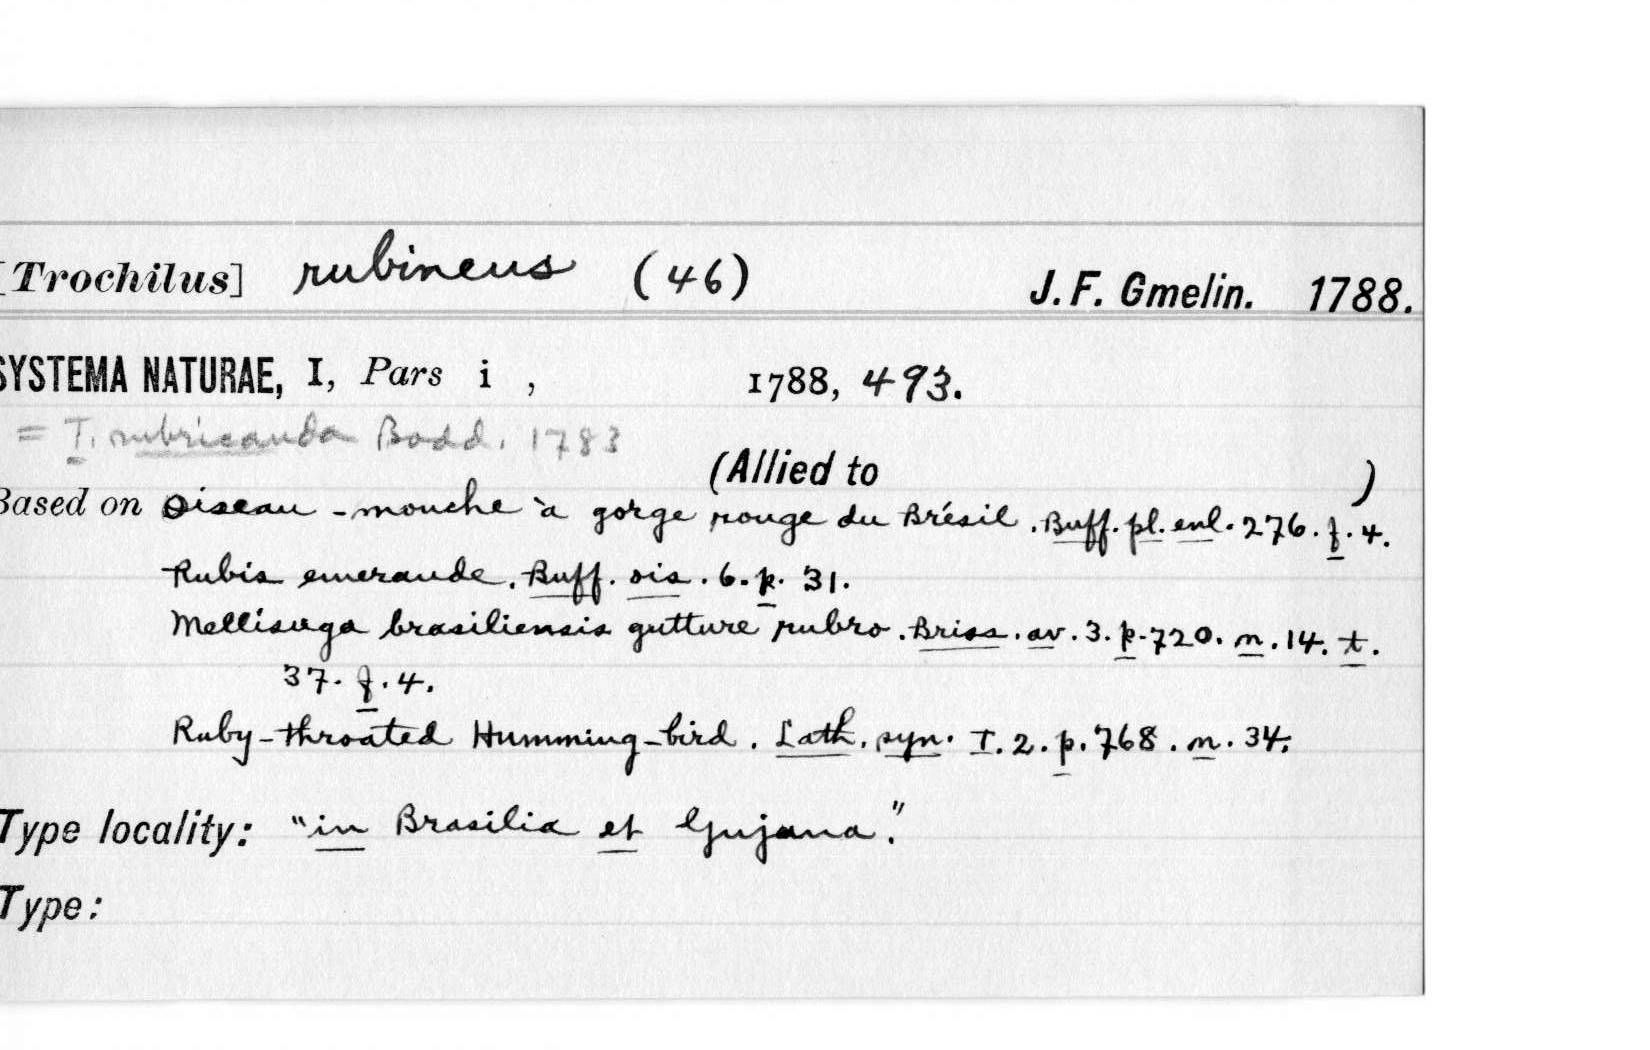 [Trochilus] rubineus (46) J. F. Gmelin. 1788.
SYSTEMA NATURAE, I, Pars i , 1788, 493.
= T. rubricauda Bodd. 1783
(Allied to )
Based on Oiseau-mouche à gorge rouge du Brésil. Buff. pl. enl. 276. f. 4.
Rubis emeraude. Buff. ois. 6. p. 31.
Mellisuga brasiliensis gutture rubro. Briss. av. 3. p. 720. n. 14. t.
37. f. 4.
Ruby-throated Humming-bird. Lath. syn. I. 2. p. 768. n. 34.
Type locality: "in Brasilia et Gujana."
Type: